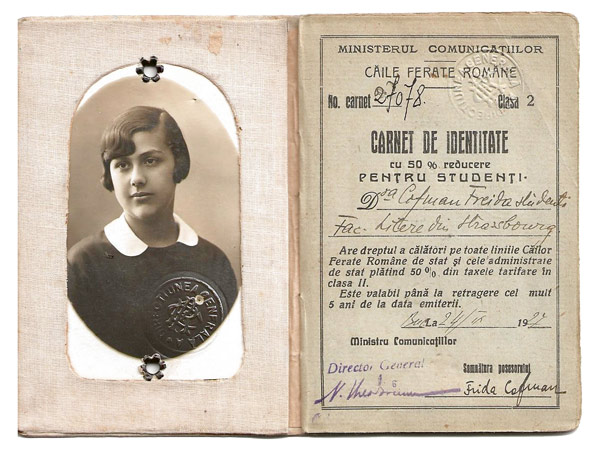 MINISTERUL COMUNICAȚIILOR
CĂILE FERATE ROMÂNE
No. carnet 27078. Clasa 2
CARNET DE IDENTITATE
cu 50 % reducere
PENTRU STUDENȚI
Dra Cofman Freida studentă
Fac. Litere din Strasbourg.
Are dreptul a călători pe toate liniile Căilor
Ferate Române de stat și cele administrate
de stat plătind 50 % din taxele tarifare în
clasa II.
Este valabil până la retragere cel mult
5 ani de la data emiterii.
La 24/ 1927
Ministru Comunicațiilor
Director General
Semnătura posesorului
Frida Cofman
DIRECȚIUNEA GENERALĂ